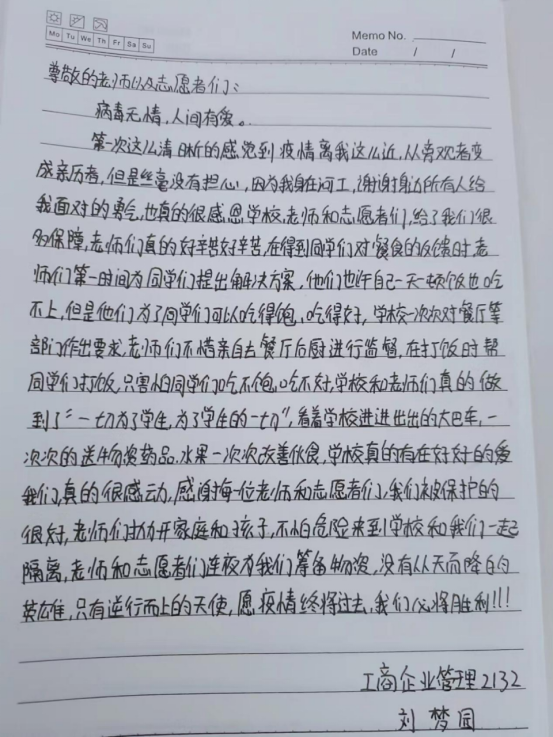 Mo Tu We Th Fr Sa Su
Memo No.
Date / /
尊敬的老师以及志愿者们:
病毒无情,人间有爱。
第一次这么清晰的感觉到疫情离我这么近,从旁观者变
成亲历者,但是丝毫没有担心,因为我身在河工,谢谢身边所有人给
我面对的勇气,也真的很感恩学校,老师和志愿者们,给了我们很
多保障,老师们真的好辛苦好辛苦,在得到同学们对餐食的反馈时,老
师们第一时间为同学们提出解决方案,他们也许自己一天一顿饭也吃
不上,但是他们为了同学们可以吃得饱,吃得好,学校一次次对餐厅等
部门作出要求,老师们不惜亲自去餐厅后厨进行监督,在打饭时帮
同学们打饭,只害怕同学们吃不饱,吃不好,学校和老师们真的做
到了“一切为了学生,为了学生的一切”,看着学校进进出出的大巴车,一
次次的送物资药品.水果一次次改善伙食,学校真的有在好好的爱
我们,真的很感动,感谢每一位老师和志愿者们,我们被保护的
很好,老师们抛开家庭和孩子,不怕危险来到学校和我们一起
隔离,老师和志愿者们连夜为我们筹备物资,没有从天而降的
英雄,只有逆行而上的天使,愿疫情终将过去,我们必将胜利!!!
工商企业管理2132
刘梦园